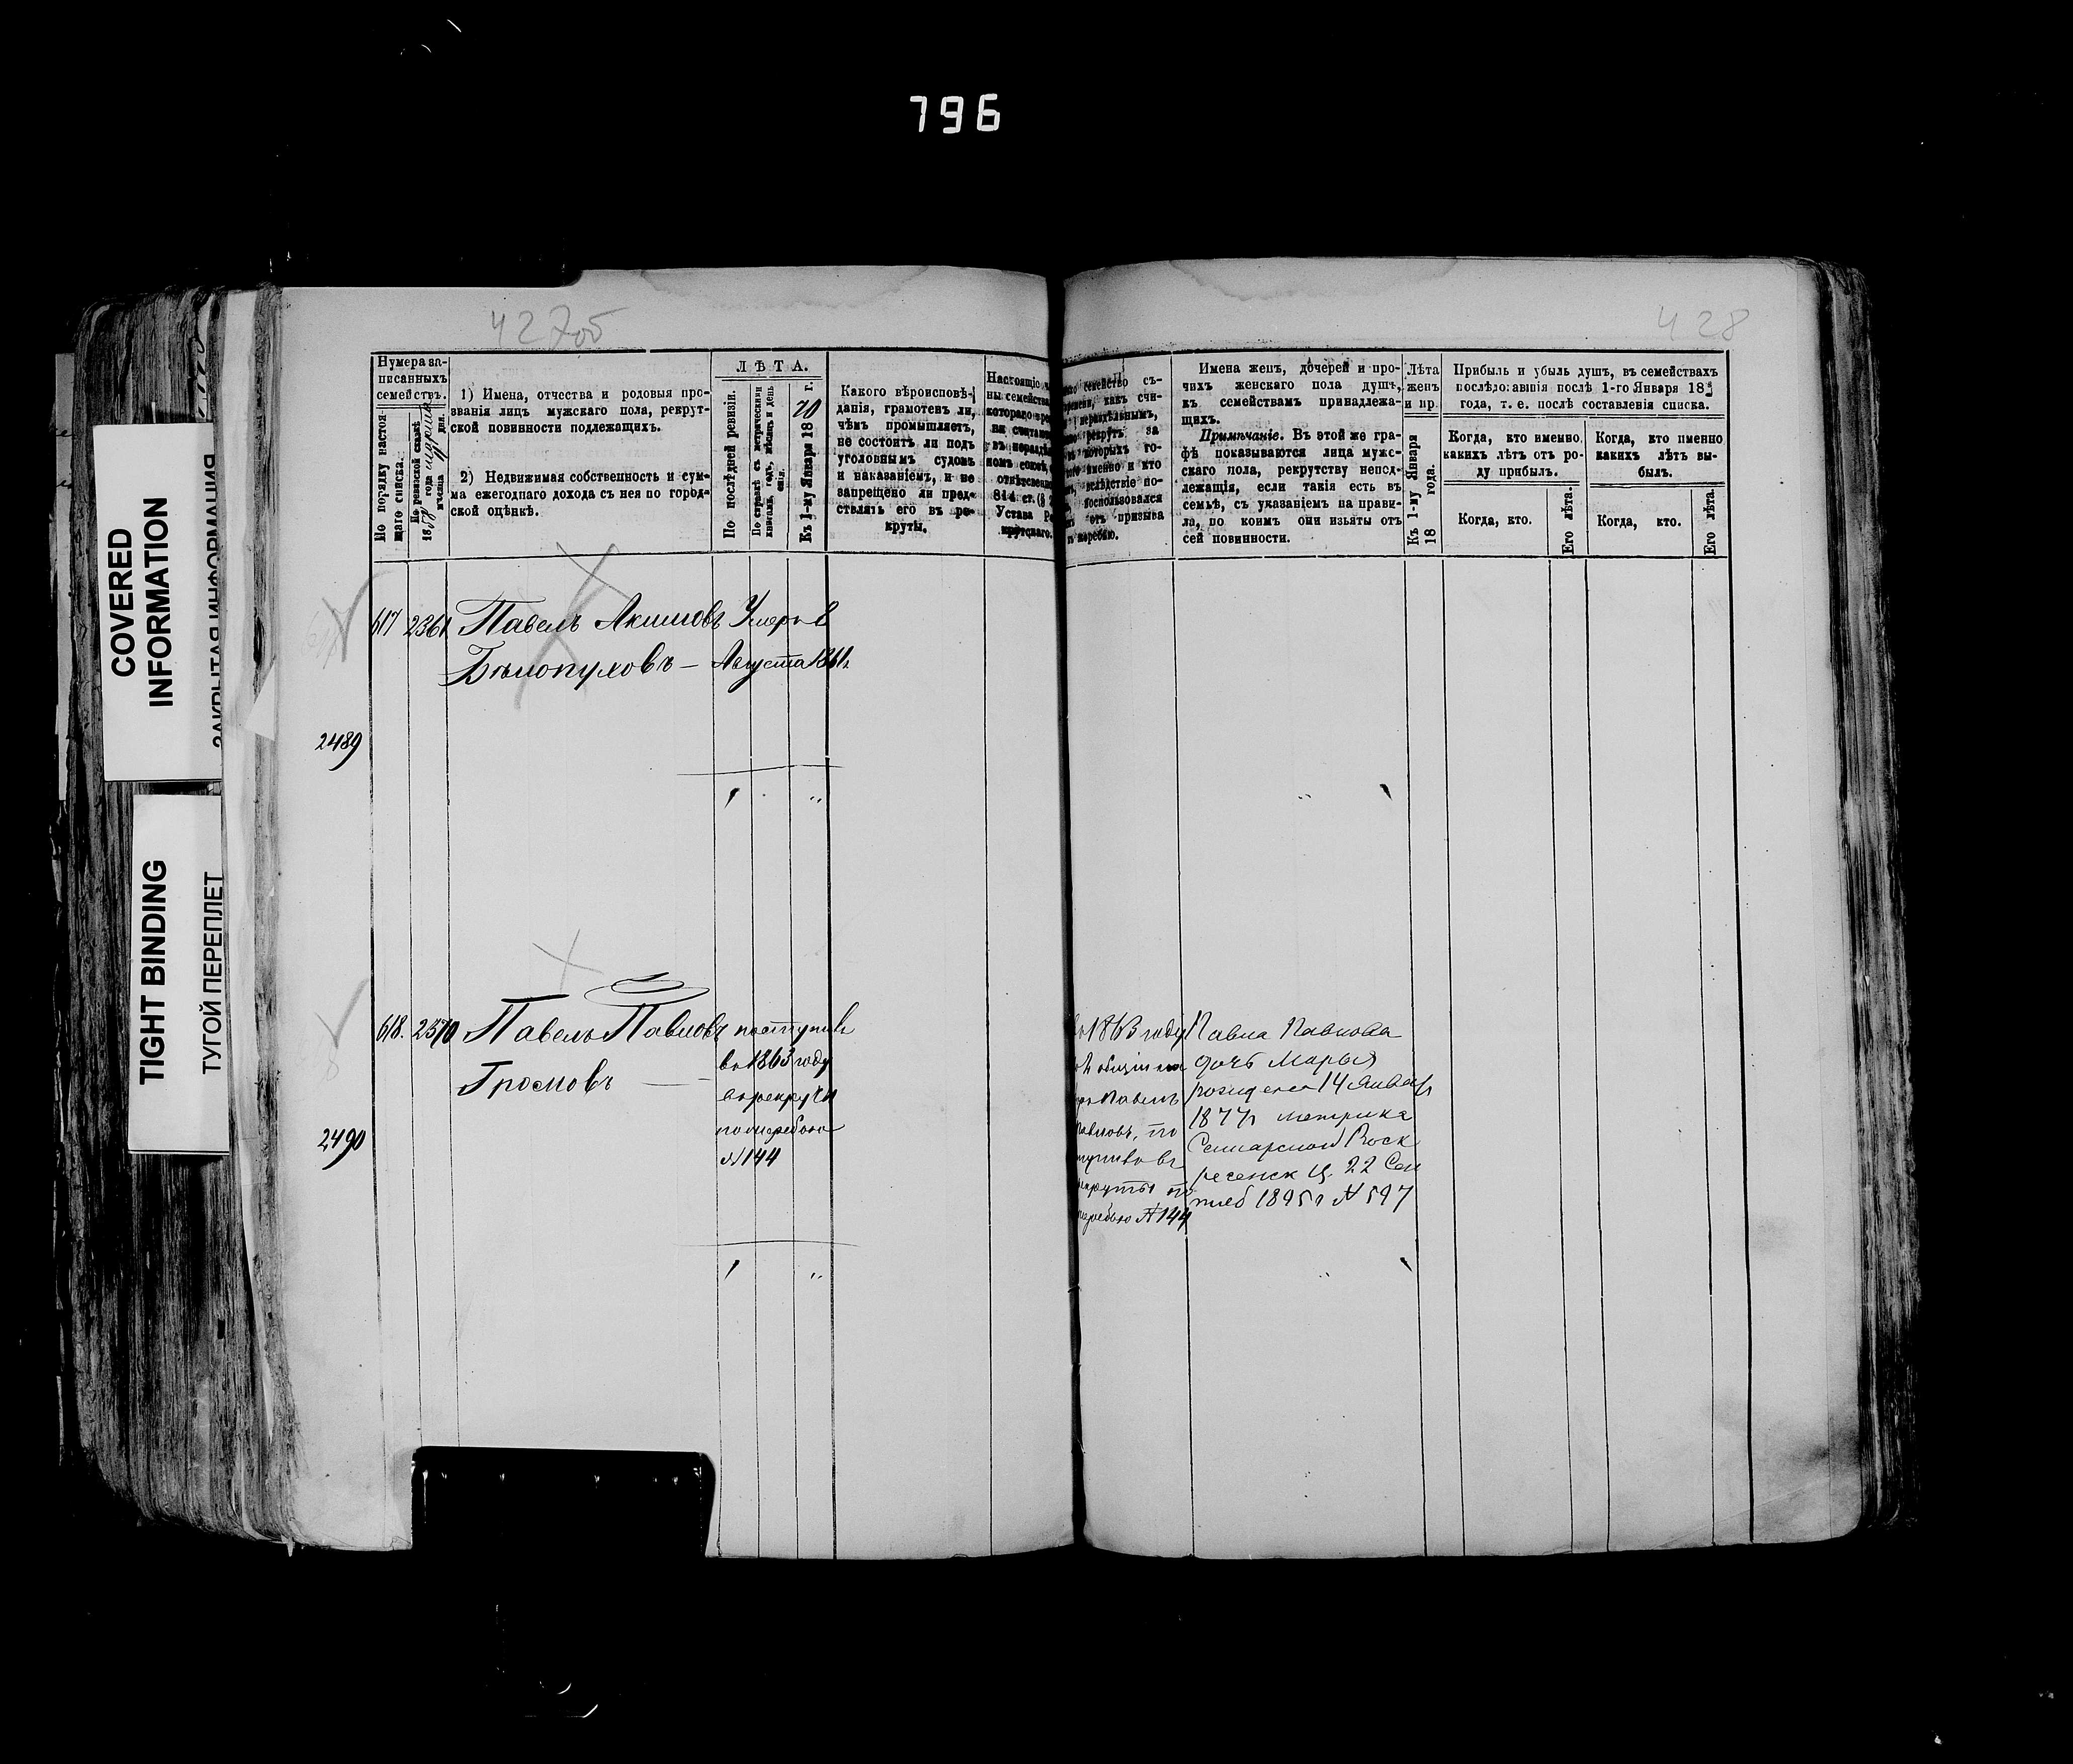 796
COVERED
INFORMATION
ЗАКРЫТАЯ ИНФОРМАЦИЯ
TIGHT BINDING
ТУГОЙ ПЕРЕПЛЕТ
427об
428
Нумера за-
писанныхъ
семействъ.
По порядку настоя-
щаго списка.
По ревизской сказкѣ
1858 года
мѣсяца дня.
1) Имена, отчества и родовыя про-
званія лицъ мужскаго пола, рекрут-
ской повинности подлежащихъ.
2) Недвижимая собственность и сум-
ма ежегоднаго дохода съ нея по город-
ской оцѣнкѣ.
ЛѢТА.
По послѣдней ревизіи.
По справкѣ съ метрическими
книгами, годъ, мѣсяцъ и день
Къ 1-му Января 1870 г.
Какого вѣроисповѣ-
данія, грамотенъ ли,
чѣмъ промышляетъ,
не состоитъ ли подъ
уголовнымъ судомъ
и наказаніемъ, и не
запрещено ли пред-
ставлять его въ ре-
круты.
Настоящіе
ны семейства
котораго
не считаются
въ нераздѣ
номъ союзѣ,
отвѣтственно
814 ст.
Устава Ре
крутскаго.
семейство съ-
времени, какъ счи-
рекрутъ за
которыхъ го-
именно и кто
вслѣдствіе по-
воспользовался
отъ призыва
жеребію.
Имена женъ, дочерей и про-
чихъ женскаго пола душъ,
къ семействамъ принадлежа-
щихъ.
Примѣчаніе. Въ этой же гра-
фѣ показываются лица муж-
скаго пола, рекрутству непод-
лежащія, если такія есть въ
семьѣ, съ указаніемъ на прави-
ла, по коимъ они изъяты отъ
сей повинности.
Лѣта
женъ
и пр.
Къ 1-му Января
18 года.
Прибыль и убыль душъ, въ семействахъ
послѣдовавшія послѣ 1-го Января 18
года, т. е. послѣ составленія списка.
Когда, кто именно,
какихъ лѣтъ отъ ро-
ду прибылъ.
Когда, кто именно
какихъ лѣтъ вы-
былъ.
Когда, кто.
Его лѣта.
Когда, кто.
Его лѣта.
617 2361 Павелъ Акимовъ Умеръ 8
Бѣлопуховъ — Августа 1861г
2489
618. 2370 Павелъ Павловъ поступилъ
Громовъ —
въ 1863 году
въ рекруты
по жеребью
№ 144
2490
въ 1863 году
Павелъ
Павловъ, по
ступилъ въ
рекруты по
жеребью № 144
Павла Павлова
дочь Марья
рождена 14 Января
1877г метрика
Самарской Воск
ресенск ц. 22 Сен
тяб 1895г № 597